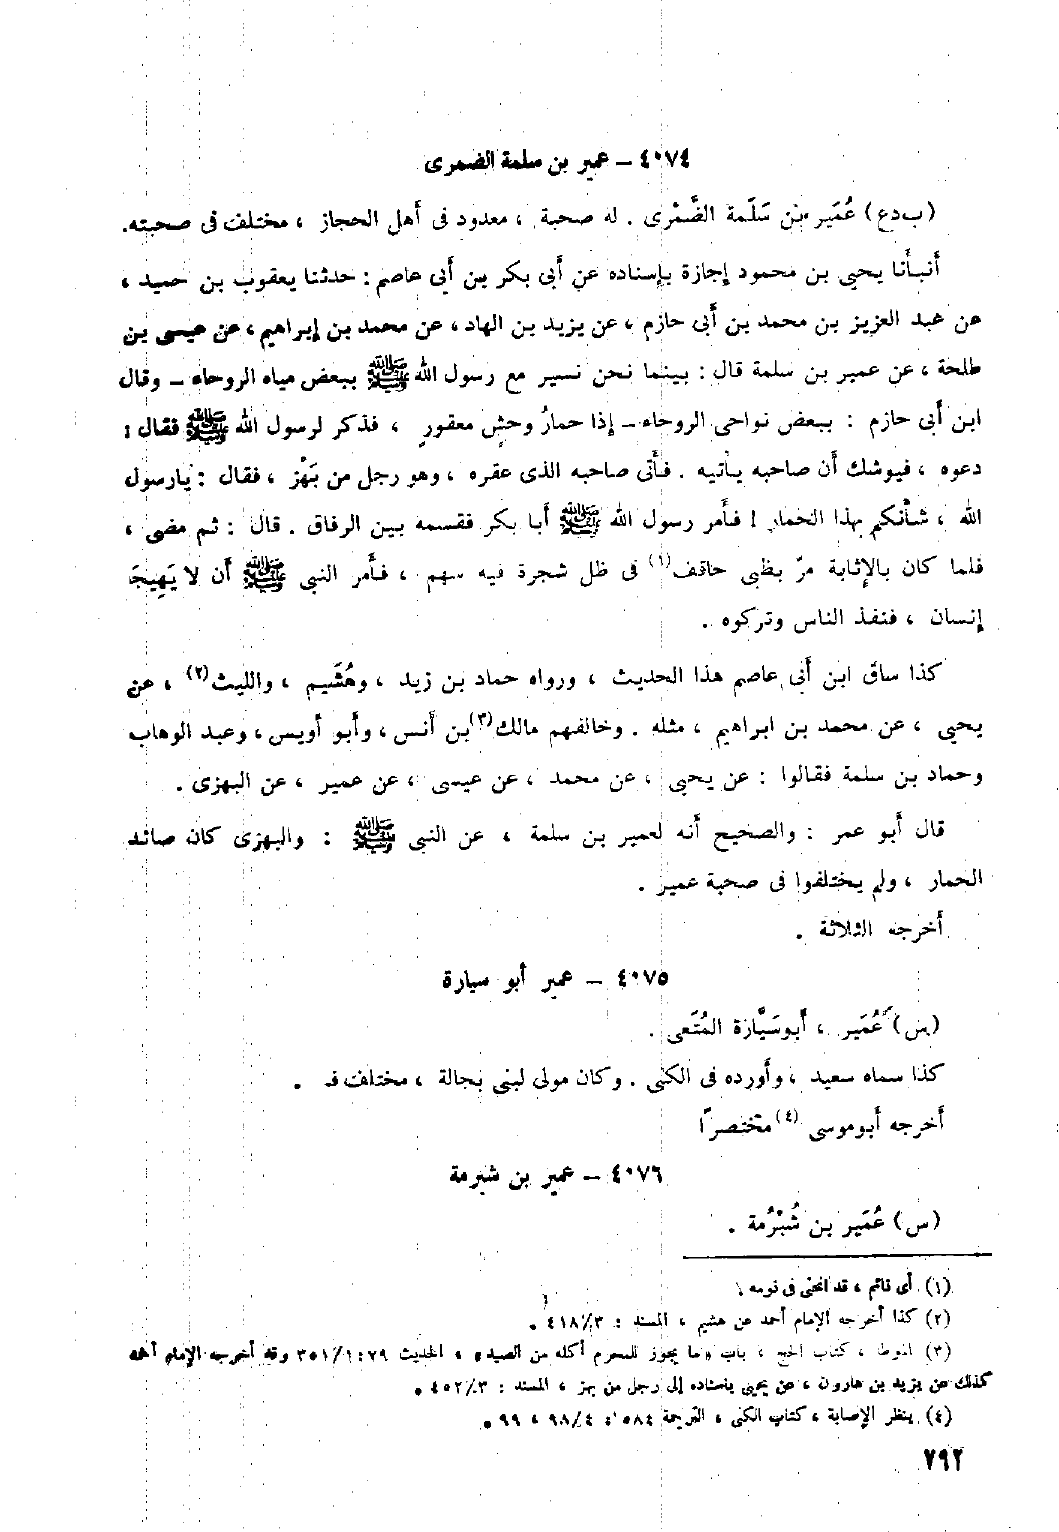 ٤٠٧٤ – عمير بن سلمة الضمرى
(ب د ع) عُمَير بن سَلَمة الضَّمْرى . له صحبة ، معدود فى أهل الحجاز ، مختلف فى صحبته.
أنبأنا يحيى بن محمود إجازة بإسناده عن أبى بكر بن أبى عاصم : حدثنا يعقوب بن حميد ،
عن عبد العزيز بن محمد بن أبى حازم ، عن يزيد بن الهاد ، عن محمد بن إبراهيم ، عن عيسى بن
طلحة ، عن عمير بن سلمة قال : بينما نحن نسير مع رسول الله ﷺ ببعض مياه الروحاء – وقال
ابن أبى حازم : ببعض نواحى الروحاء – إذا حمارُ وحشٍ معقورٍ ، فذكر لرسول الله ﷺ فقال :
دعوه ، فيوشك أن صاحبه يأتيه . فأتى صاحبه الذى عقره ، وهو رجل من بَهْز ، فقال : يارسول
الله ، شأنكم بهذا الحمار ! فأمر رسول الله ﷺ أبا بكر فقسمه بين الرفاق . قال : ثم مضى ،
فلما كان بالإثابة مرّ بظبى حاقف (١) فى ظل شجرة فيه سهم ، فأمر النبى ﷺ أن لا يَهِيجَه
إنسان ، فنفذ الناس وتركوه .
كذا ساق ابن أبى عاصم هذا الحديث ، ورواه حماد بن زيد ، وهُشَيم ، والليث (٢) ، عن
يحيى ، عن محمد بن ابراهيم ، مثله . وخالفهم مالك (٣) بن أنس ، وأبو أويس ، وعبد الوهاب
وحماد بن سلمة فقالوا : عن يحيى ، عن محمد ، عن عيسى ، عن عمير ، عن البهزى .
قال أبو عمر : والصحيح أنه لعمير بن سلمة ، عن النبى ﷺ : والبهزى كان صائد
الحمار ، ولم يختلفوا فى صحبة عمير .
أخرجه الثلاثة .
٤٠٧٥ – عمير أبو سيارة
(س) عُمَير ، أبو سَيَّارة المُتَعى .
كذا سماه سعيد ، وأورده فى الكنى . وكان مولى لبنى بجالة ، مختلف فـ .
أخرجه أبوموسى (٤) مختصرًا
٤٠٧٦ – عمير بن شبرمة
(س) عُمَير بن شُبْرُمة .
(١) أى نائم ، قد انحنى فى نومه .
(٢) كذا أخرجه الإمام أحمد عن هشيم ، المسند : ٤١٨/٣ .
(٣) الموطأ ، كتاب الحج ، باب « ما يجوز للمحرم أكله من الصيد » ، الحديث ٧٩ : ٣٥١/١ وقد أخرجه الإمام أحمد
كذلك عن يزيد بن هارون ، عن يحيى باسناده إلى رجل من بهز ، المسند : ٤٥٢/٣ .
(٤) ينظر الإصابة ، كتاب الكنى ، الترجمة ٥٨٤ : ٩٨/٤ ، ٩٩ .
٧٩٢